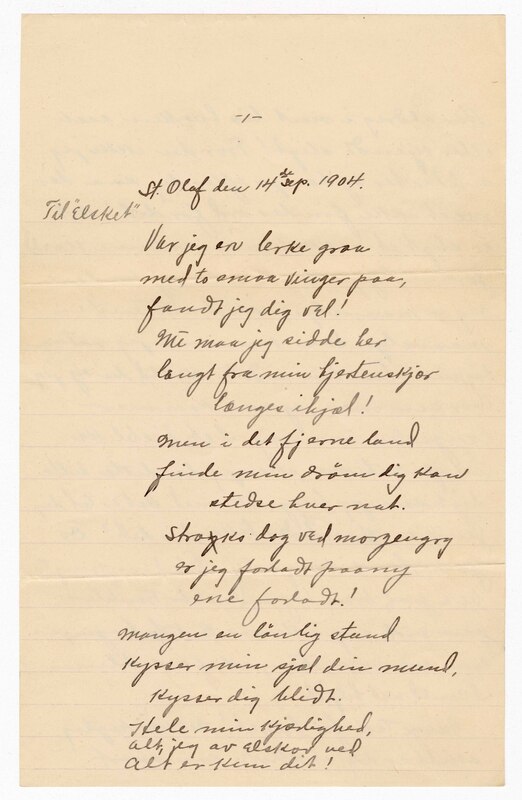 -1-
St. Olaf den 14de Sep. 1904.
Til "Elsket"
Var jeg en lerke graa
med to smaa vinger paa,
fandt jeg dig vel!
Nu maa jeg sidde her
langt fra min hjertenskjær
længes ihjæl!
Men i det fjerne land
finde min dröm dig kan
stedse hver nat.
Strayks dog ved morgengry
er jeg forladt paany
ene forladt!
Mangen en lönlig stund
Kysser min sjæl din mund,
Kysser dig blidt.
Hele min Kjærlighed,
alt, jeg av Elskov ved
Alt er Kun dit!